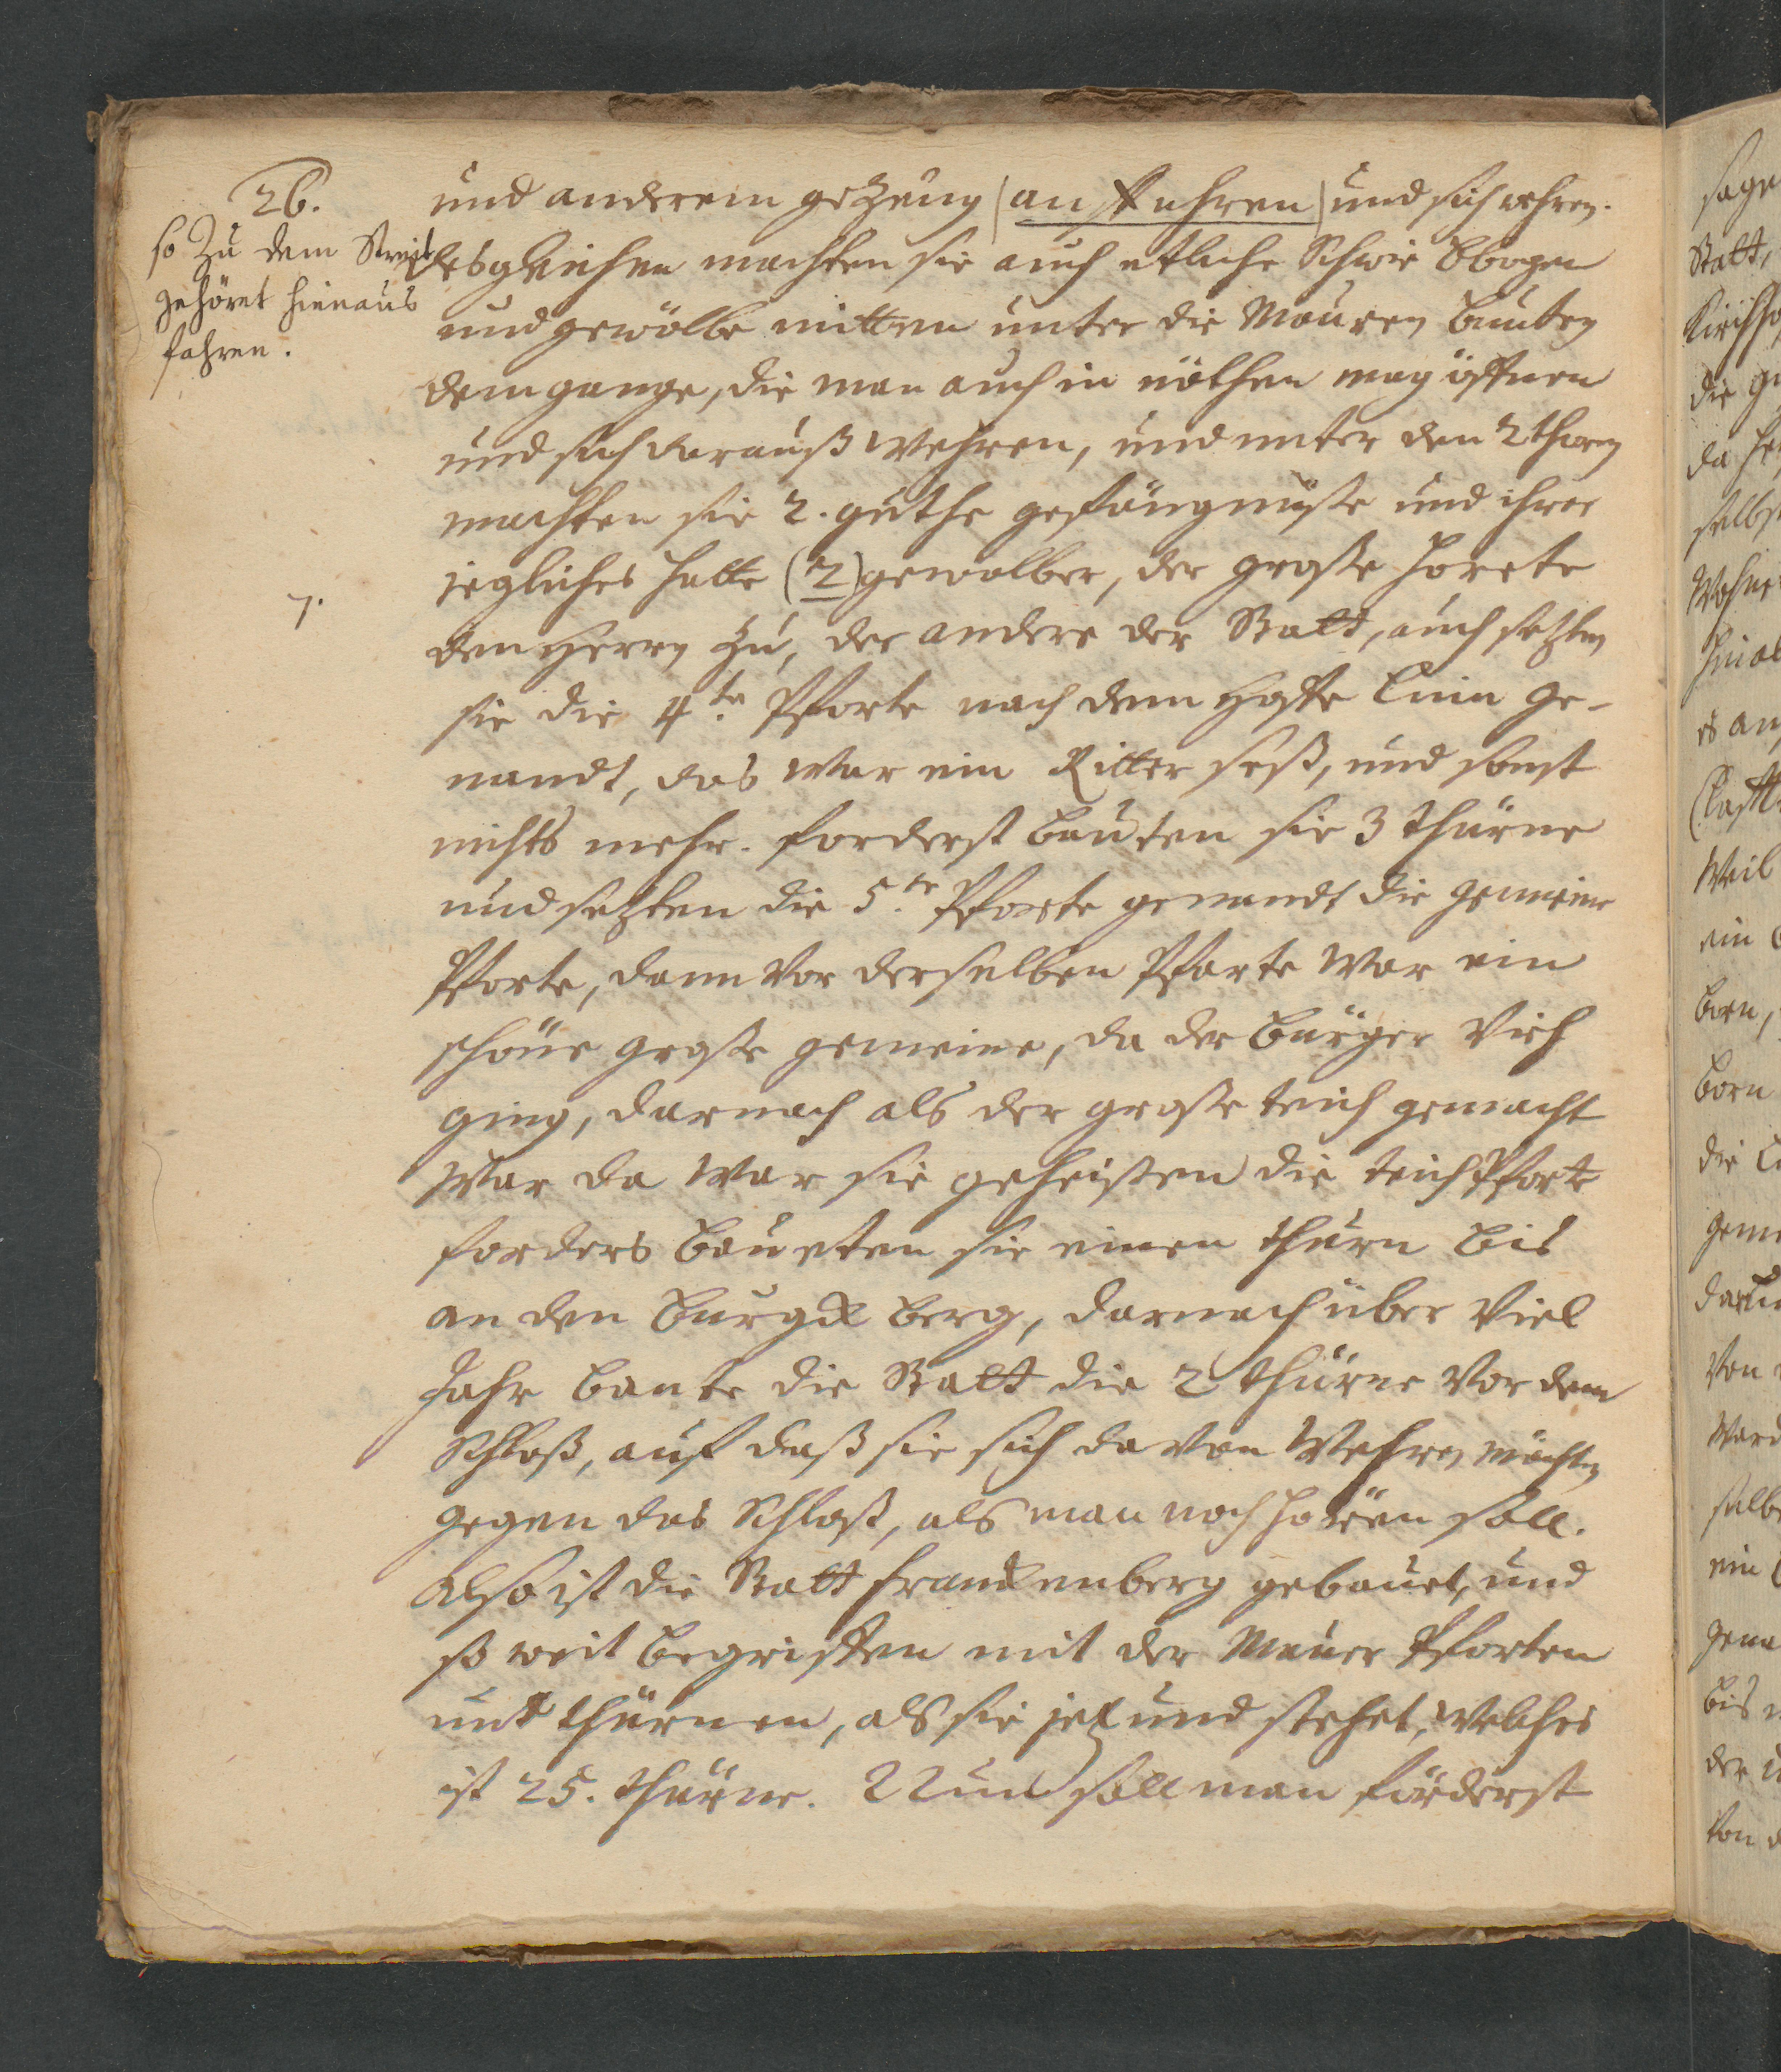 26.
so Zu dem Streit
gehöret hinaus
fahren.
7.
und anderem geZeug (an fuhren) und sich wehren.
desgleichen machten sie auch etliche Schwie Bbogen
und gewölbe mitten unter die Mauren bauten
dem gange, die man auch in nöthen mag öffnen
und sich darauß wehren, und unter den 2 thoren
machten sie 2. guthe gefängnüße und ihrer
jegliches hatte (2) gewolber, der große horete
den Herrn zu, der andere der Statt, auch setzten
sie die 4te. Pforte nach dem Hoffe Linn ge-
nandt, das war ein Ritter seß, und sonst
nichts mehr. forderst bauten sie 3 thürne
und setzten die 5.te Pforte genandt die gemeine
Pforte, dann vor derselben Pforte war ein
schöne große gemeine, da der bürger Vieh
ging, darnach als der große teich gemacht
war da war sie geheißen die teichPforte
forders baueten sie einen thurn bis
an den burgk berg, darnach über viel
Jahr baute die Statt die 2 thürne vor dem
Schloß, auf daß sie sich da von wehren möchten
gegen das Schloß, als man noch horen soll.
Also ist die Statt franckenberg gebauet, und
so weit begriffen mit der Mauer Pforten
und thürnen, als sie jetzund stehet, welches
ist 25. thürne. Nun soll man förderst